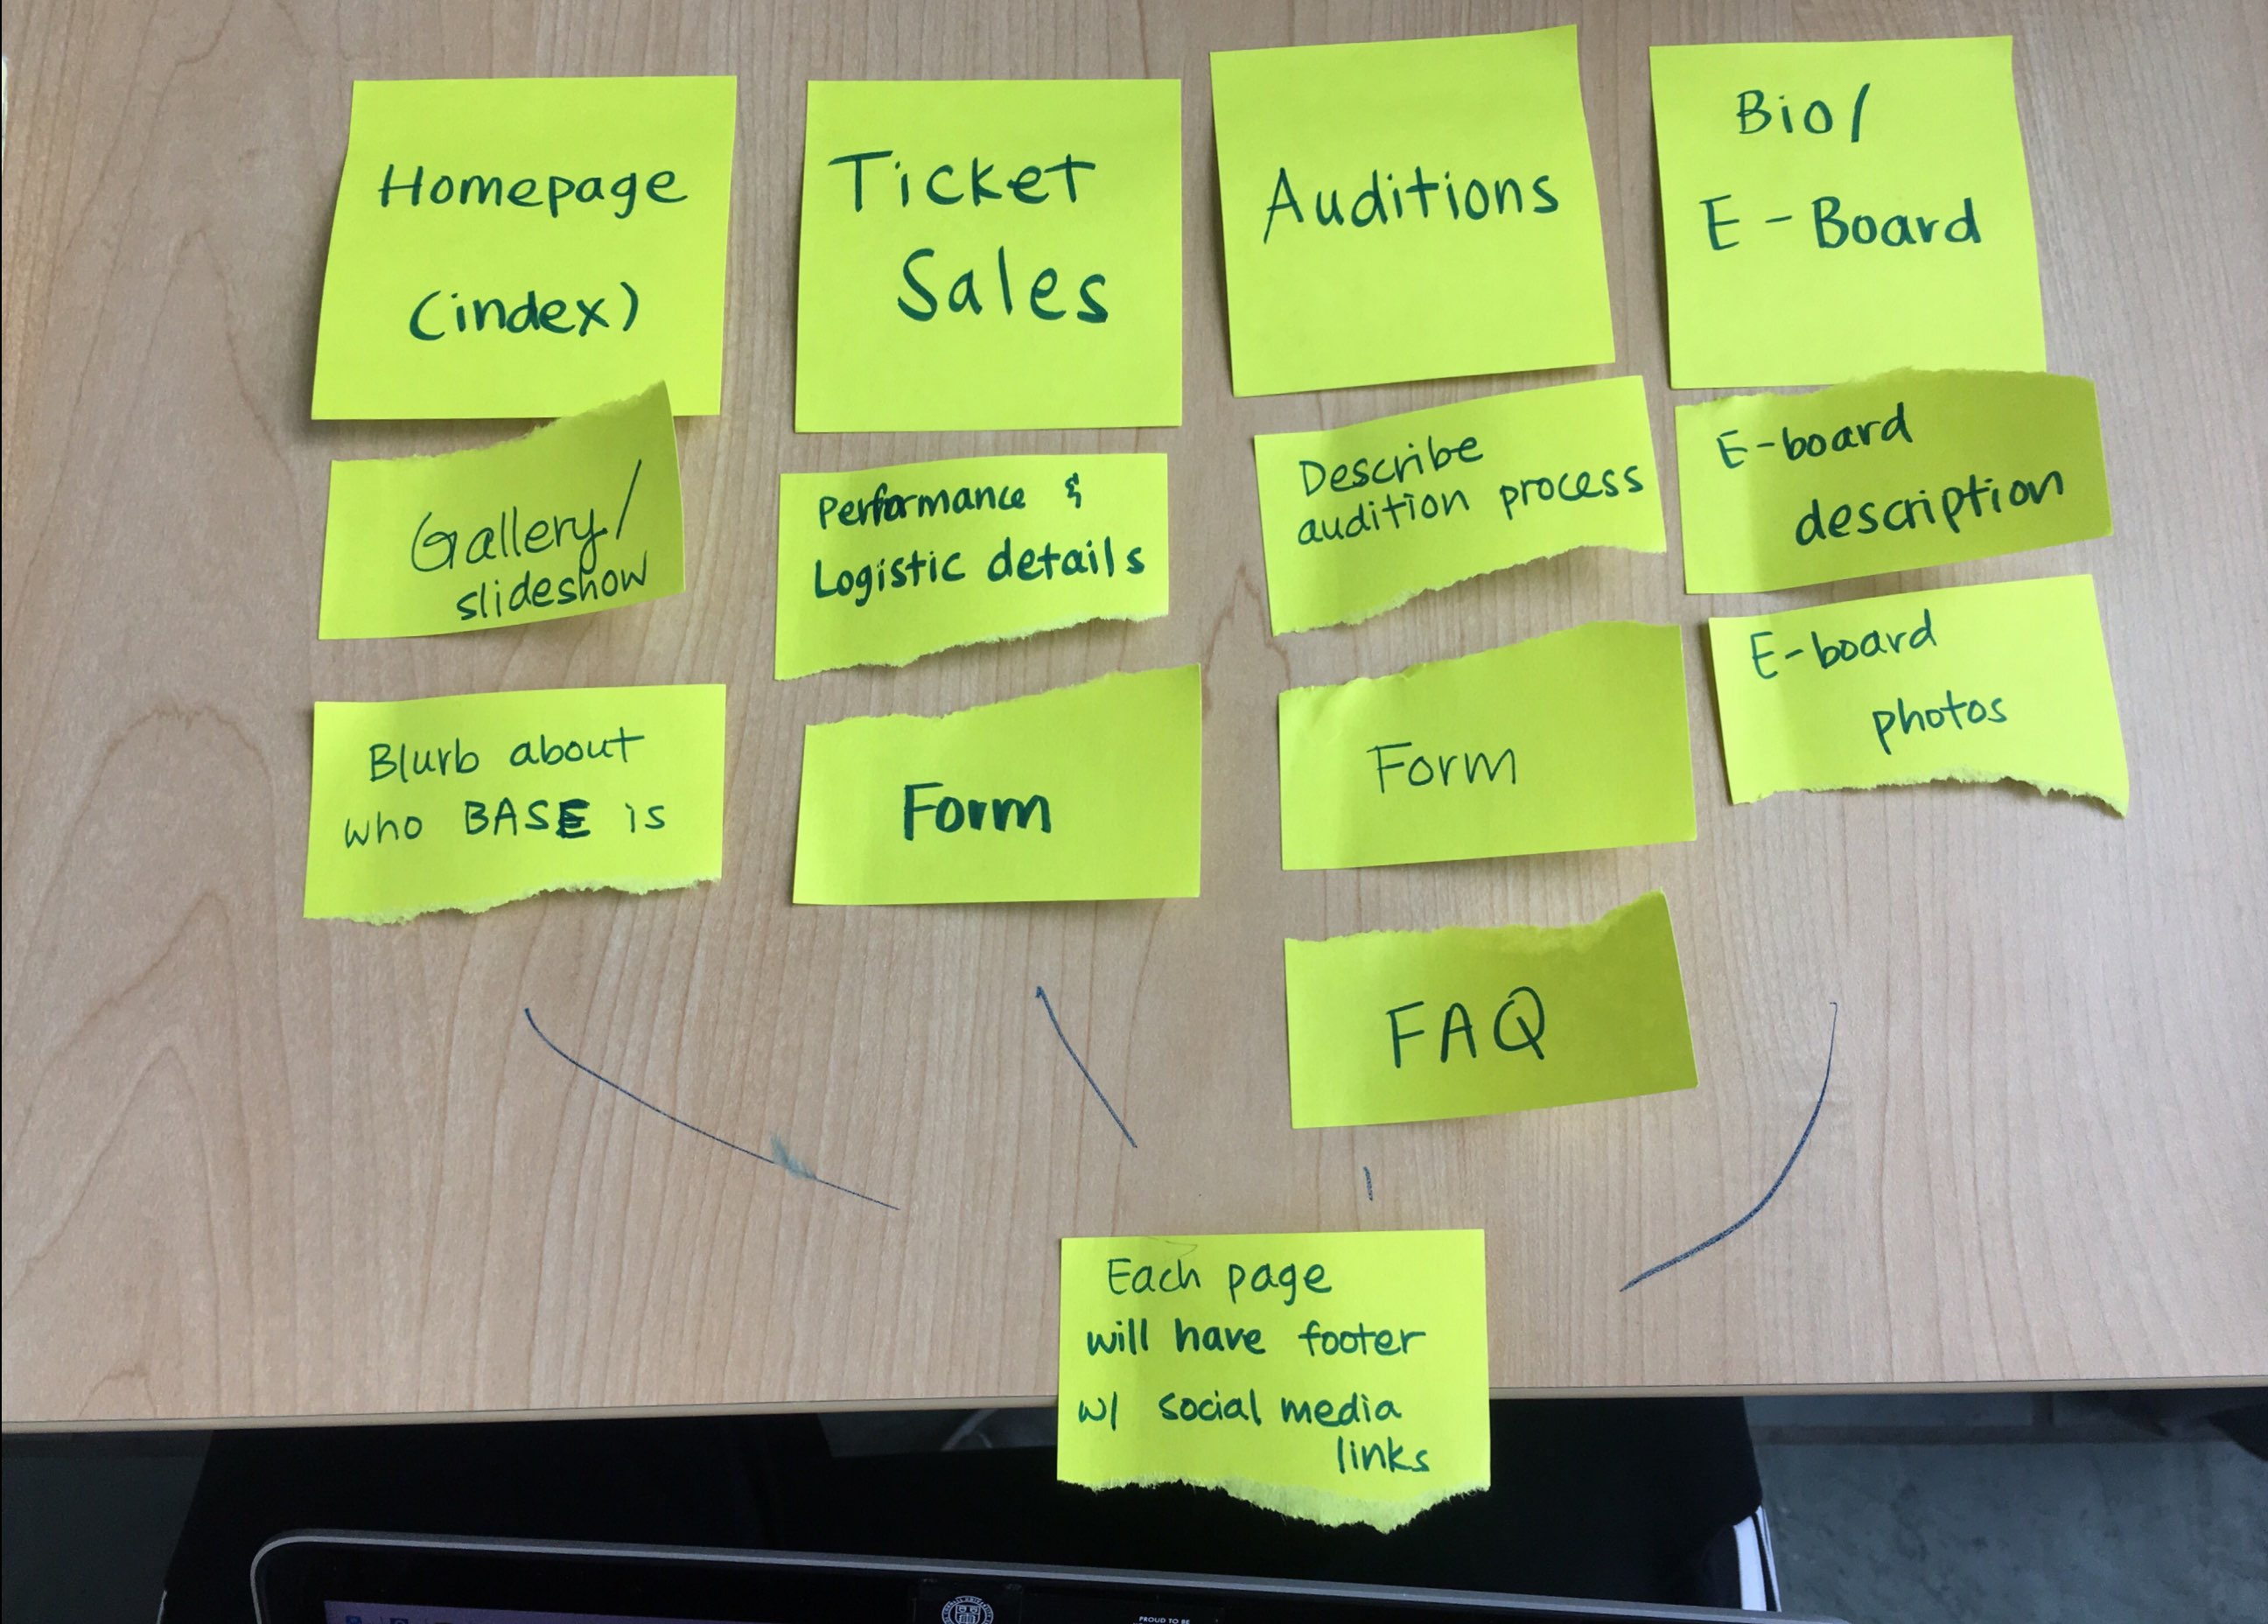 Homepage
(index)
Gallery/
slideshow
Blurb about
who BASE is
Ticket
Sales
Performance &
Logistic details
Form
Auditions
Describe
audition process
Form
FAQ
Bio/
E-Board
E-board
description
E-board
photos
Each page
will have footer
w/ social media
links
PROUD TO BE